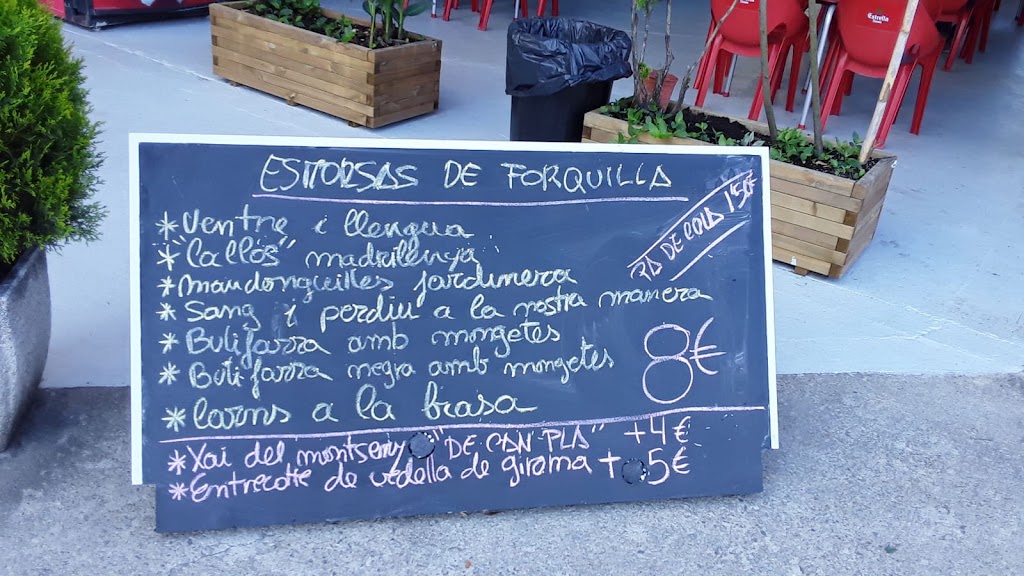 ESMORSAS DE FORQUILLA
*Ventre i llengua
*"Callos" madrilenya
*Mandonguilles jardinera
*Sang i perdiu a la nostra manera
*Butifarra amb mongetes
*Butifarra negra amb mongetes
*Carns a la brasa
DE COLA 1'50€
8€
*Xai del montseny "DE CAN PLA" +4€
*Entrecotte de vedella de girona +5€
Estrella
Estrella